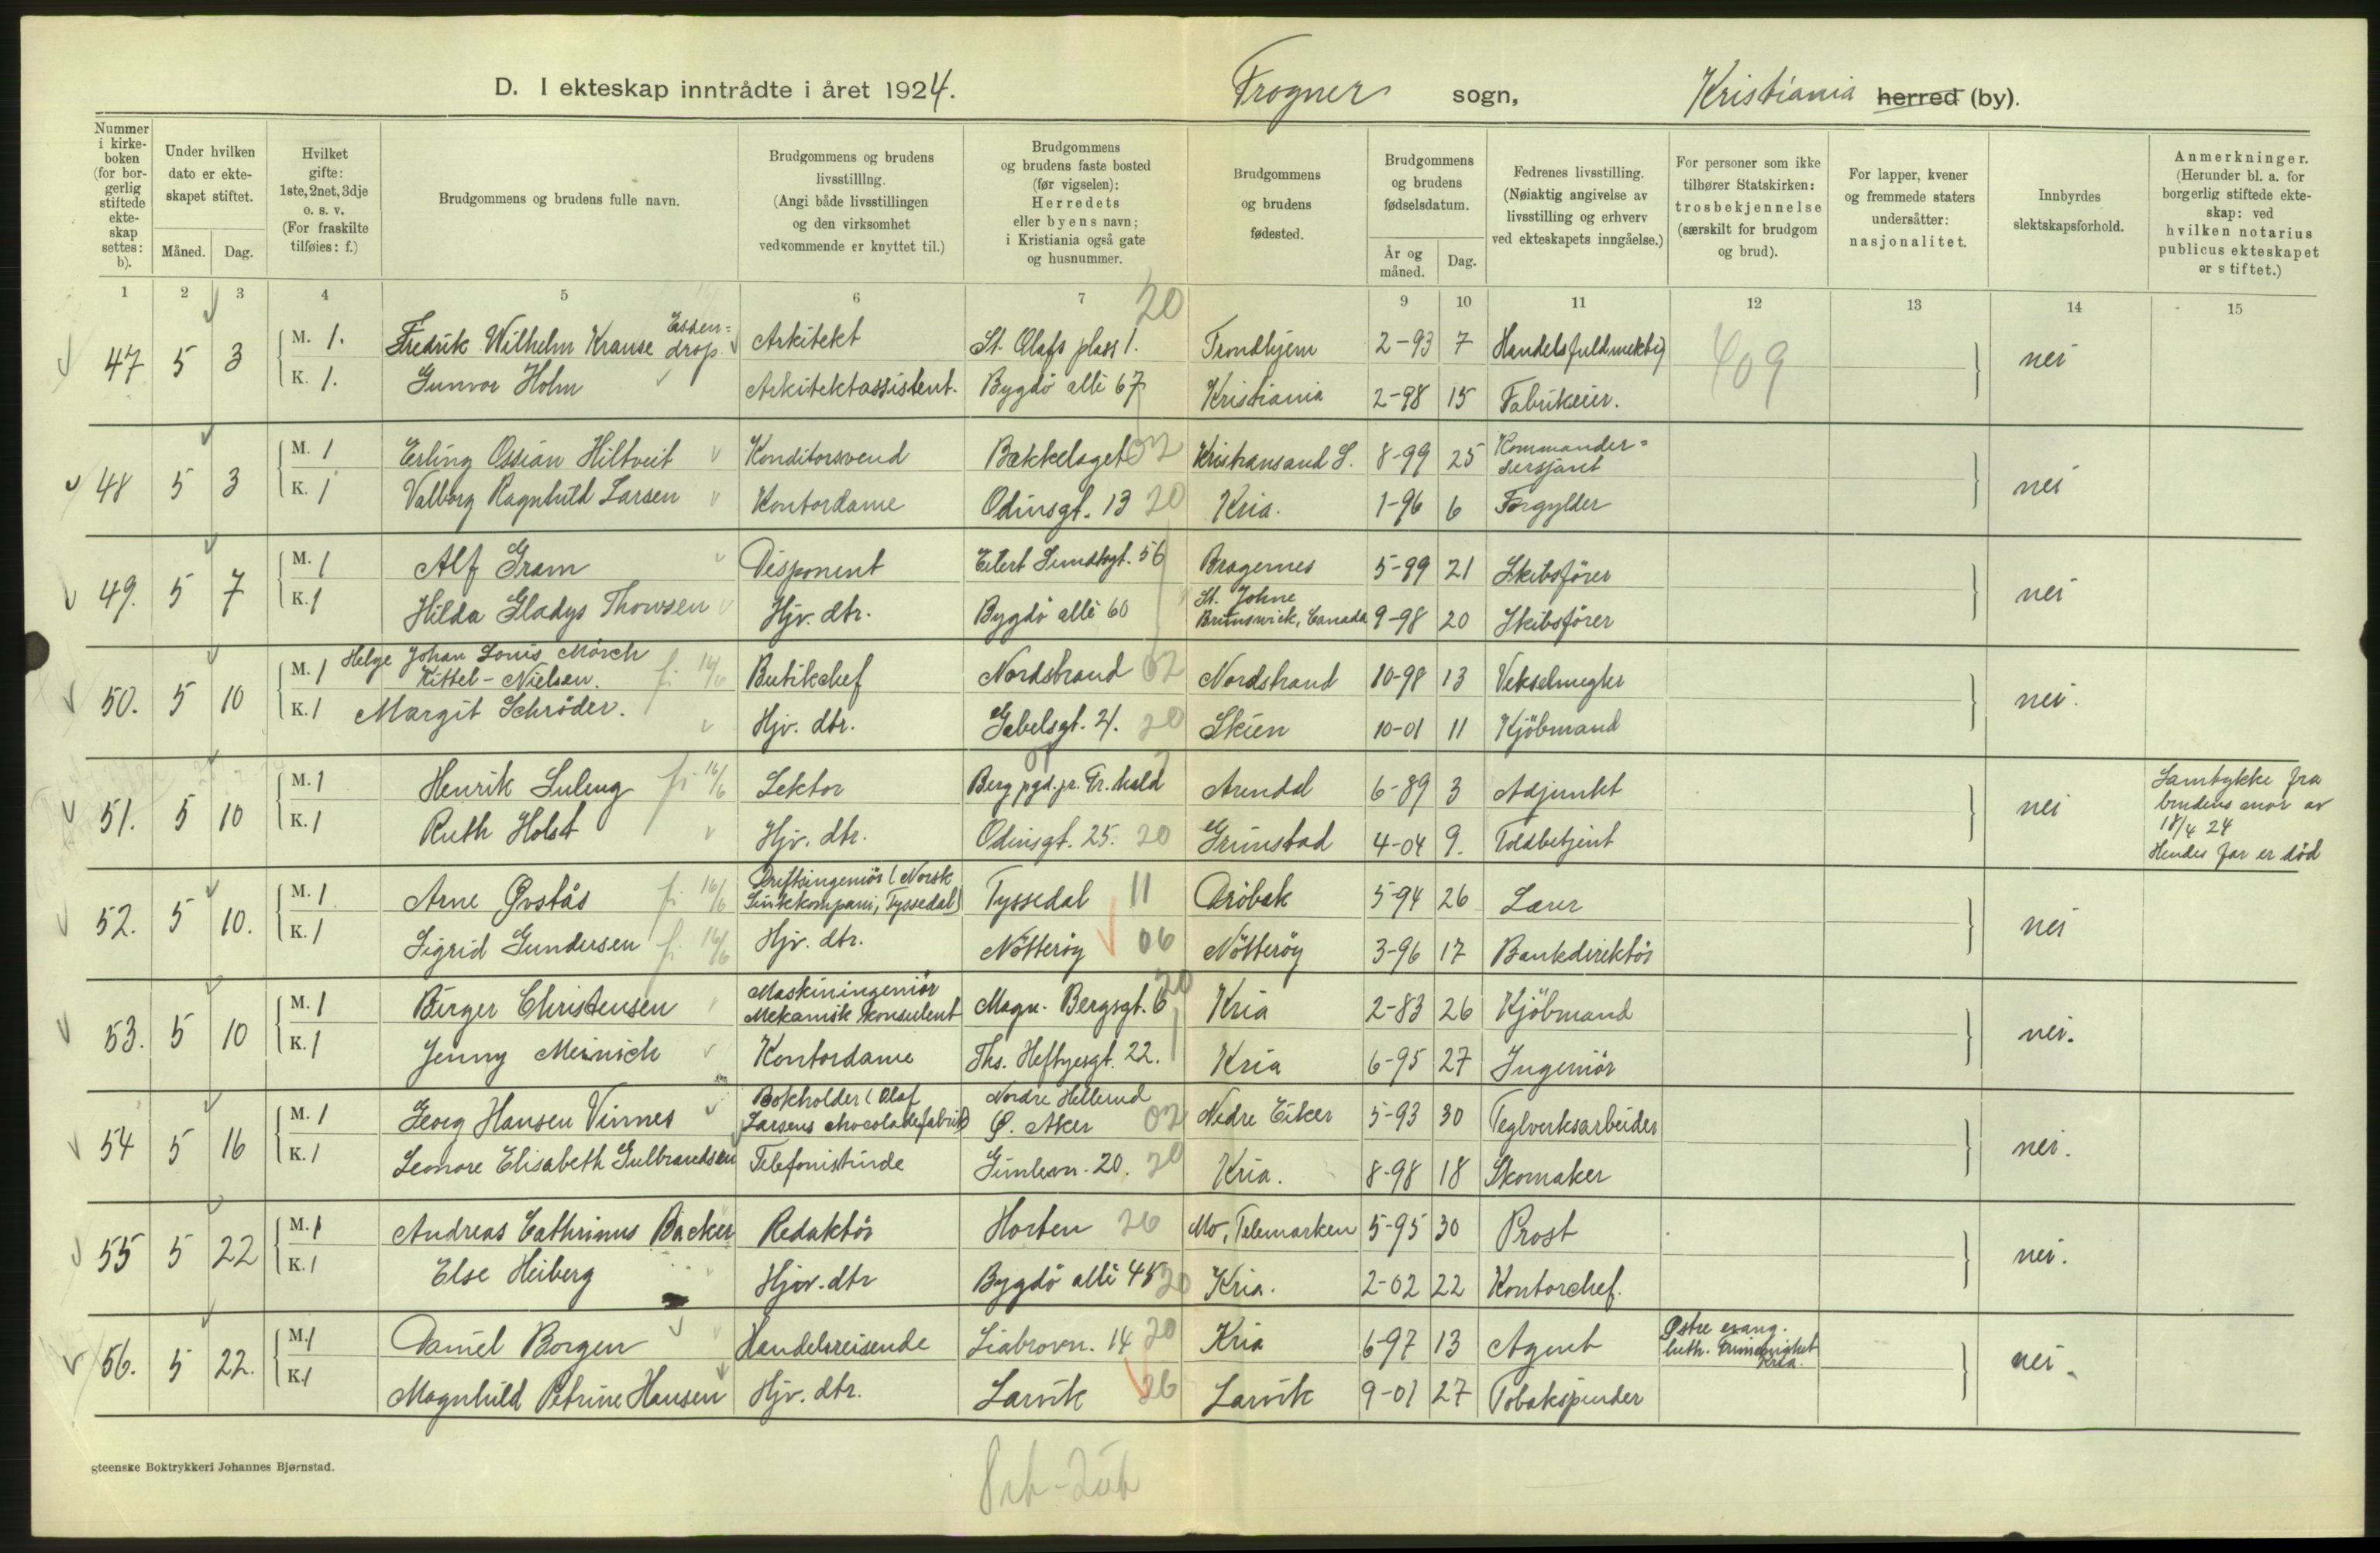 D. I ekteskap inntrådte i året 1924.
Frogner sogn,
Kristiania herred (by).
Nummer i kirkeboken (for borgerlig stiftede ekteskap settes: b).
Under hvilken dato er ekteskapet stiftet.
Måned.
Dag.
Hvilket gifte: 1ste, 2net, 3dje o. s. v. (For fraskilte tilføies: f.)
Brudgommens og brudens fulle navn.
Brudgommens og brudens livsstilling. (Angi både livsstillingen og den virksomhet vedkommende er knyttet til.)
Brudgommens og brudens faste bosted (før vigselen): Herredets eller byens navn; i Kristiania også gate og husnummer.
Brudgommens og brudens fødested.
Brudgommens og brudens fødselsdatum.
År og måned.
Dag.
Fedrenes livsstilling. (Nøiaktig angivelse av livsstilling og erhverv ved ekteskapets inngåelse.)
For personer som ikke tilhører Statskirken: trosbekjennelse (særskilt for brudgom og brud).
For lapper, kvener og fremmede staters undersåtter: nasjonalitet.
Innbyrdes slektskapsforhold.
Anmerkninger. (Herunder bl. a. for borgerlig stiftede ekteskap: ved hvilken notarius publicus ekteskapet er stiftet.)
1 2 3 4 5 6 7 9 10 11 12 13 14 15
20
47 5 3 M. 1. Fredrik Wilhelm Krause Essendrop Arkitekt St. Olafs plass 1. Trondhjem 2-93 7 Handelsfuldmektig 409 nei
K. 1. Gunvor Holm Arkitektassistent. Bygdö alle 67 Kristiania 2-98 15 Fabrikeier.
48 5 3 M. 1 Erling Ossian Hiltveit Konditorsvend Bækkelaget 02 Kristiansand S. 8-99 25 Kommandersersjant nei
K. 1 Valborg Ragnhild Larsen Kontordame Odinsgt. 13 20 Kria. 1-96 6 Forgylder
49. 5 7 M. 1 Alf Gram Disponent Eilert Sundtsgt. 56 Bragernes 5-99 21 Skibsfører nei
K. 1 Hilda Gladys Thowsen Hjv. dtr. Bygdö alle 60 St. Johne Brunswick, Canada 9-98 20 Skibsfører
50. 5 10 M. 1 Helge Johan Louis Mörch Kittel-Nielsen. f. 16/6 Butikchef Nordstrand 02 Nordstrand 10-98 13 Vekselmegler nei.
K. 1 Margit Schröder. Hjv. dtr. Gabelsgt. 21. 20 Skien 10-01 11 Kjöbmand
51. 5 10 M. 1 Henrik Suleng f. 16/6 Lektor Berg pgd. pr. Fr. hald 01 Arendal 6-89 3 Adjunkt nei
K. 1 Ruth Holst Hjv. dtr. Odinsgt. 25. 20 Grimstad 4-04 9. Toldbetjent
Samtykke fra
brudens mor av
18/4 24
Hendes far er död
52. 5 10. M. 1 Arne Øvstås f. 16/6 Driftsingeniör (Norsk Sinkkompani, Tyssedal) Tyssedal 11 Dröbak 5-94 26 Lærer nei
K. 1 Sigrid Gundersen f. 16/6 Hjv. dtr. Nötteröy 06 Nötteröy 3-96 17 Bankdirektör
53. 5 10 M. 1 Birger Christensen Maskiningeniör Mekanisk konsulent Magn. Bergsgt. 6 20 Kria 2-83 26 Kjöbmand nei.
K. 1 Jenny Meinich Kontordame Ths. Heftyesgt. 22. Kria 6-95 27 Ingeniör
54 5 16 M. 1 Georg Hansen Vinnes Bokholder (Olaf Larsens chocoladefabrik) Nordre Hellerud Ø. Aker 02 Nedre Eiker 5-93 30 Teglverksarbeider nei.
K. 1 Leonore Elisabeth Gulbrandsen Telefonistinde Gimlevn. 20. 20 Kria. 8-98 18 Skomaker
55 5 22 M. 1 Andreas Cathrinus Backer Redaktör Horten 26 Mo, Telemarken 5-95 30 Prost nei.
K. 1 Else Heiberg Hjv. dtr Bygdö alle 45 20 Kria. 2-02 22 Kontorchef.
56. 5 22. M. 1 Daniel Borgen Handelsreisende Liabrovn. 14 20 Kria 6-97 13 Agent Østre evang. luth. Frimenighet Kria. nei.
K. 1 Magnhild Petrine Hansen Hjv. dtr. Larvik 26 Larvik 9-01 27 Tobakspinder
gteenske Boktrykkeri Johannes Bjørnstad.